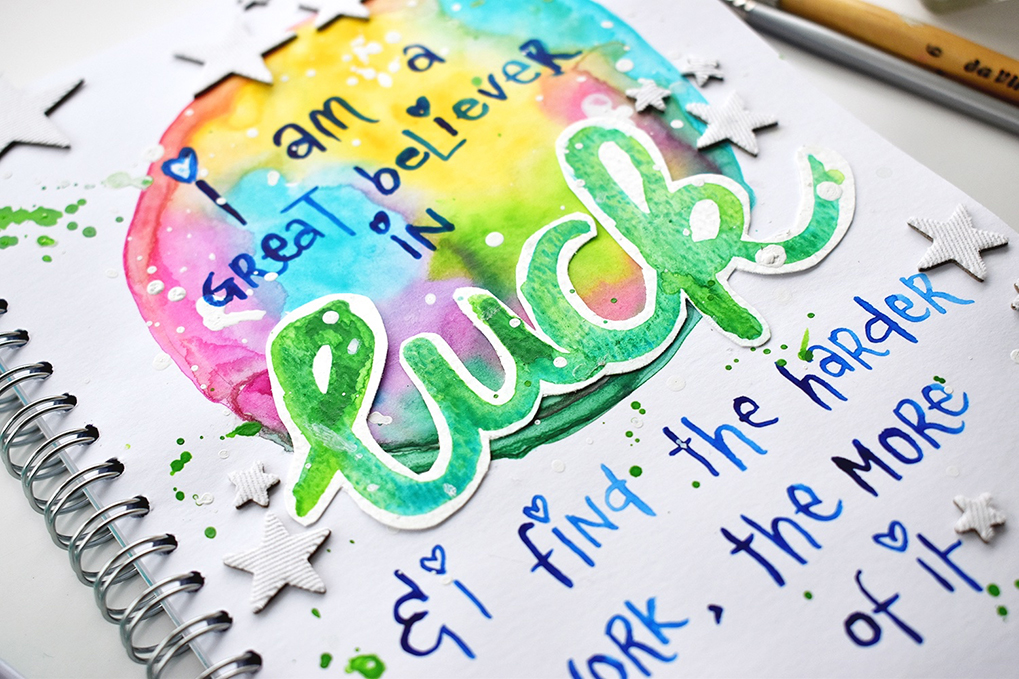 i am a
GReaT beLieveR
iN
luck
& i fiNd the hardeR
ORK, the MORe
of iT
6 da Vin